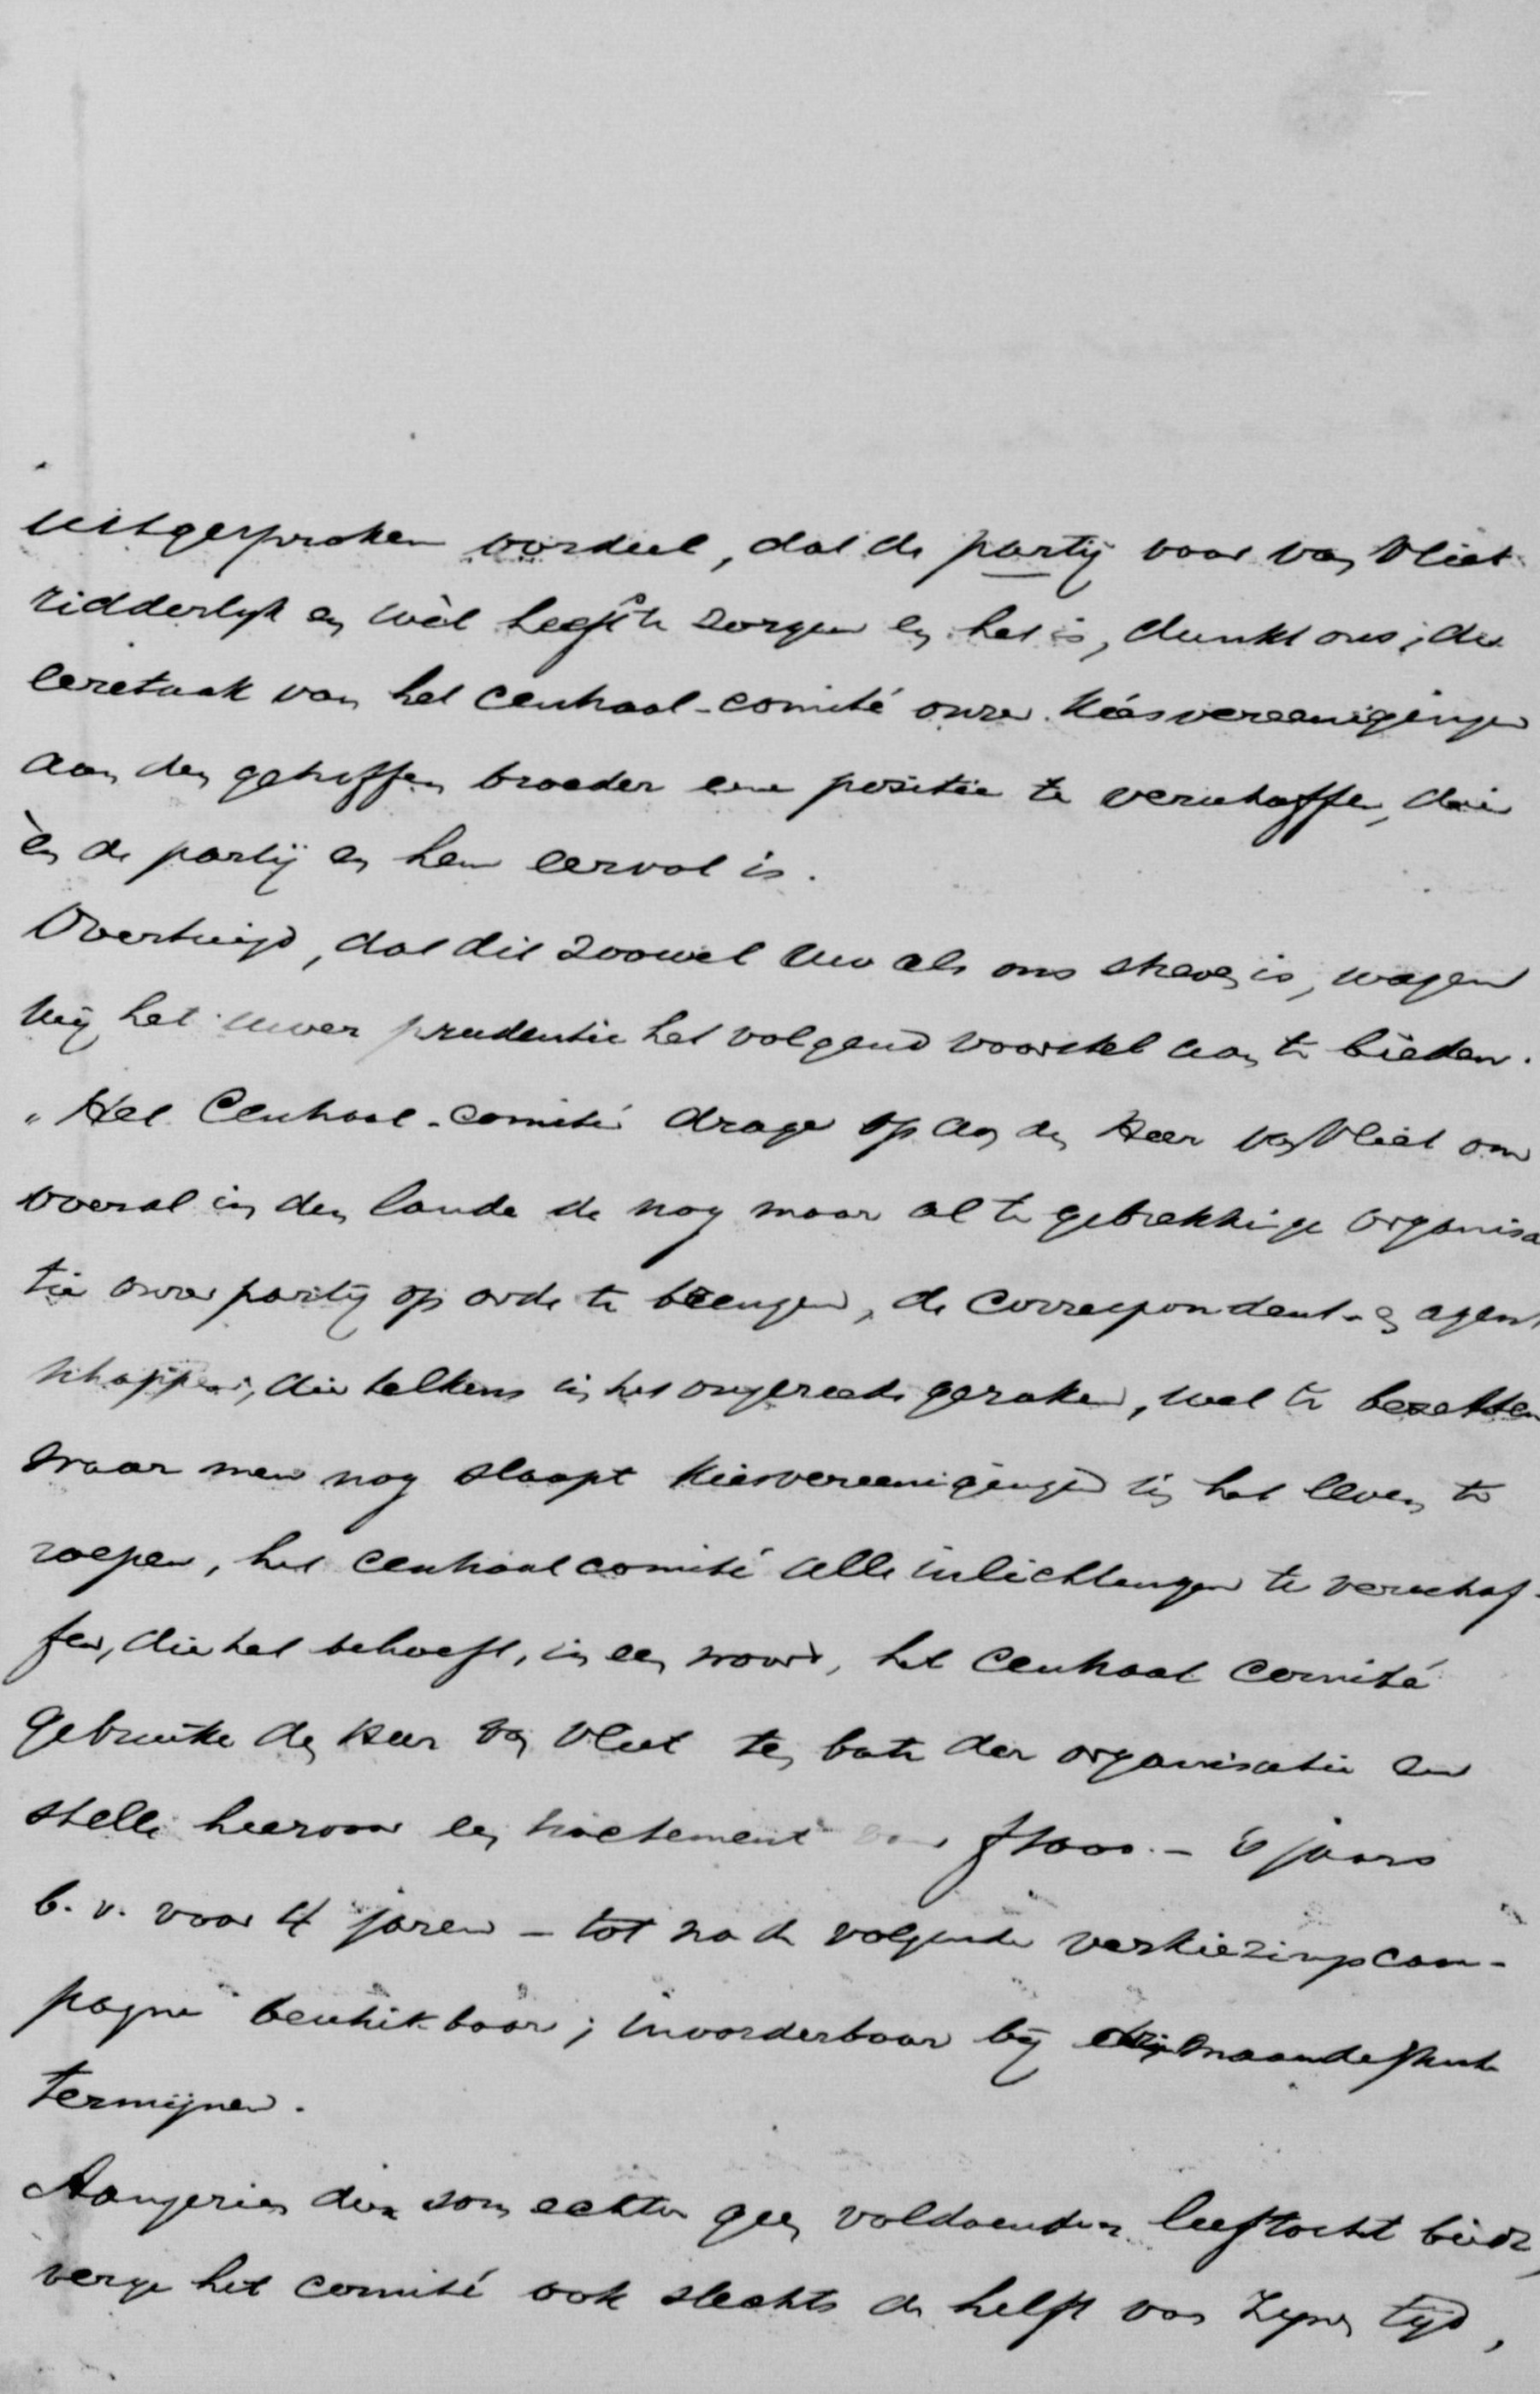 uitgesproken oordeel, dat de partij voor van Vliet
ridderlijk en wèl heeft te zorgen en het is, dunkt ons, de
eeretaak van het Centraal-comité onzer Kiesvereenigingen
aan den getroffen broeder eene positie te verschaffen, die
èn de partij en hem eervol is.
Overtuigd, dat dit zoowel Uw als ons streven is, wagen
wij het Uwer prudentie het volgend voorstel aan te bieden.
„Het Centraal-comité drage op aan den Heer van Vliet om
overal in den lande de nog maar al te gebrekkige organisa
tie onzer partij op orde te brengen, de correspondent- en agent
schappen, die telkens in het ongereede geraken, wel te bezetten
waar men nog slaapt kiesvereenigingen in het leven te
roepen, het Centraal comité alle inlichtingen te verschaf-
fen, die het behoeft, in een woord, het Centraal Comité
gebruike den Heer van Vliet ten bate der organisatie en
stelle hiervoor een tractement van f 1000.- 's jaars
b.v. voor 4 jaren - tot na de volgende verkiezingscam-
pagne beschikbaar; invorderbaar bij driemaandelijksche
termijnen.
Aangezien deze som echter geen voldoenden leeftocht biedt,
verge het comité ook slechts de helft van zijnen tijd,